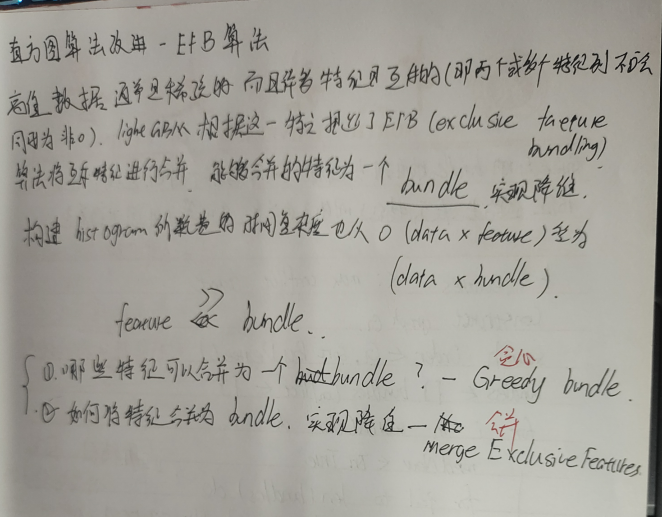 直方图算法改进 - EFB算法
高维数据通常是稀疏的 而且许多特征是互斥的(即两个或多个特征列不会
同时为非0). lightGBM 根据这一特点提出了EFB (exclusive faeture
bundling)
算法将互斥特征进行合并. 能够合并的特征为一个 bundle, 实现降维.
构建 histogram 所数差的时间复杂度也从 O (data x feature) 变为
(data x bundle).
feature >> bundle.
①. 哪些特征可以合并为一个 bundle ? - Greedy bundle.
贪心
② 如何将特征合并为 bundle. 实现降维 - Merge Exclusive Features
合并